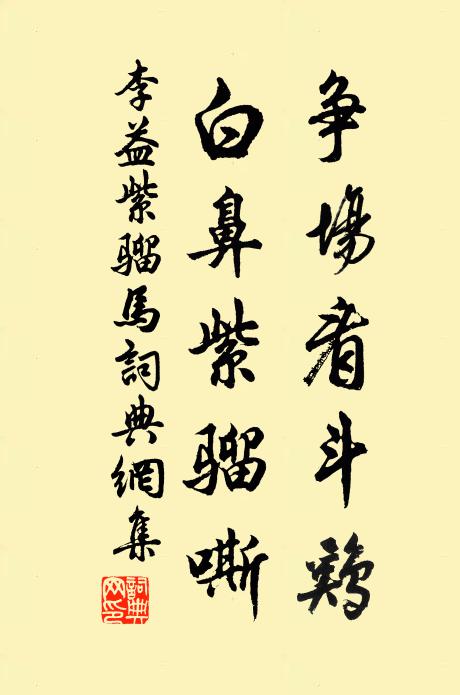 争場看斗鷄
白鼻紫騮嘶
李益紫騮馬詞典網集
詞典
网印